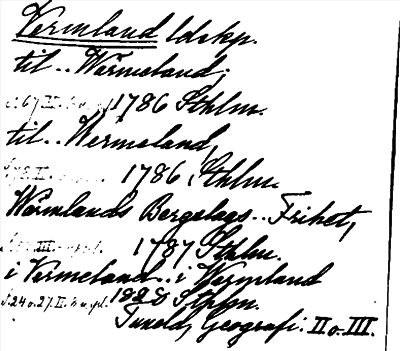 Vermland ldskp.
til.. Wärmeland;
1786 Sthlm.
til.. Wermeland,
1786 Sthlm.
Wärmlands Bergslags.. Frihet,
1787 Sthlm.
i Vermeland.. i Wermland
s. 24 o. 27. II. Sthlm.
Tuneld, Geografi: II o. III.